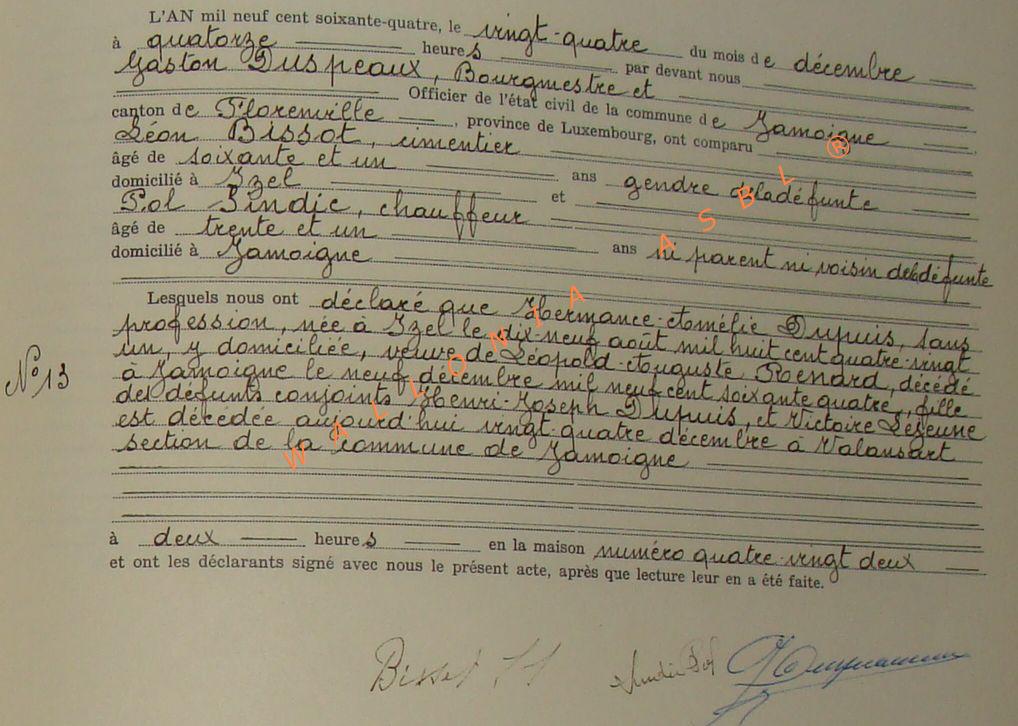 L'AN mil neuf cent soixante-quatre, le vingt-quatre du mois de décembre
à quatorze heures par devant nous
Gaston Duspeaux, Bourgmestre et
Officier de l'état civil de la commune de Jamoigne
canton de Florenville, province de Luxembourg, ont comparu
Léon Bissot, cimentier
âgé de soixante et un ans gendre de la défunte
domicilié à Izel et
Pol Sindic, chauffeur
âgé de trente et un ans ni parent ni voisin de la défunte
domicilié à Jamoigne
Lesquels nous ont déclaré que Hermance-Amélie Dupuis, sans
profession, née à Izel le dix-neuf août mil huit cent quatre-vingt
un, y domiciliée, veuve de Léopold-Auguste Renard, décédé
N° 13
à Jamoigne le neuf décembre mil neuf cent soixante quatre, fille
des défunts conjoints Henri-Joseph Dupuis, et Victoire Lejeune
est décédée aujourd'hui vingt-quatre décembre à Valansart
section de la commune de Jamoigne
à deux heures en la maison numéro quatre-vingt deux
et ont les déclarants signé avec nous le présent acte, après que lecture leur en a été faite.
Bissot
Sindic Pol
WALLONIA ASBL ®